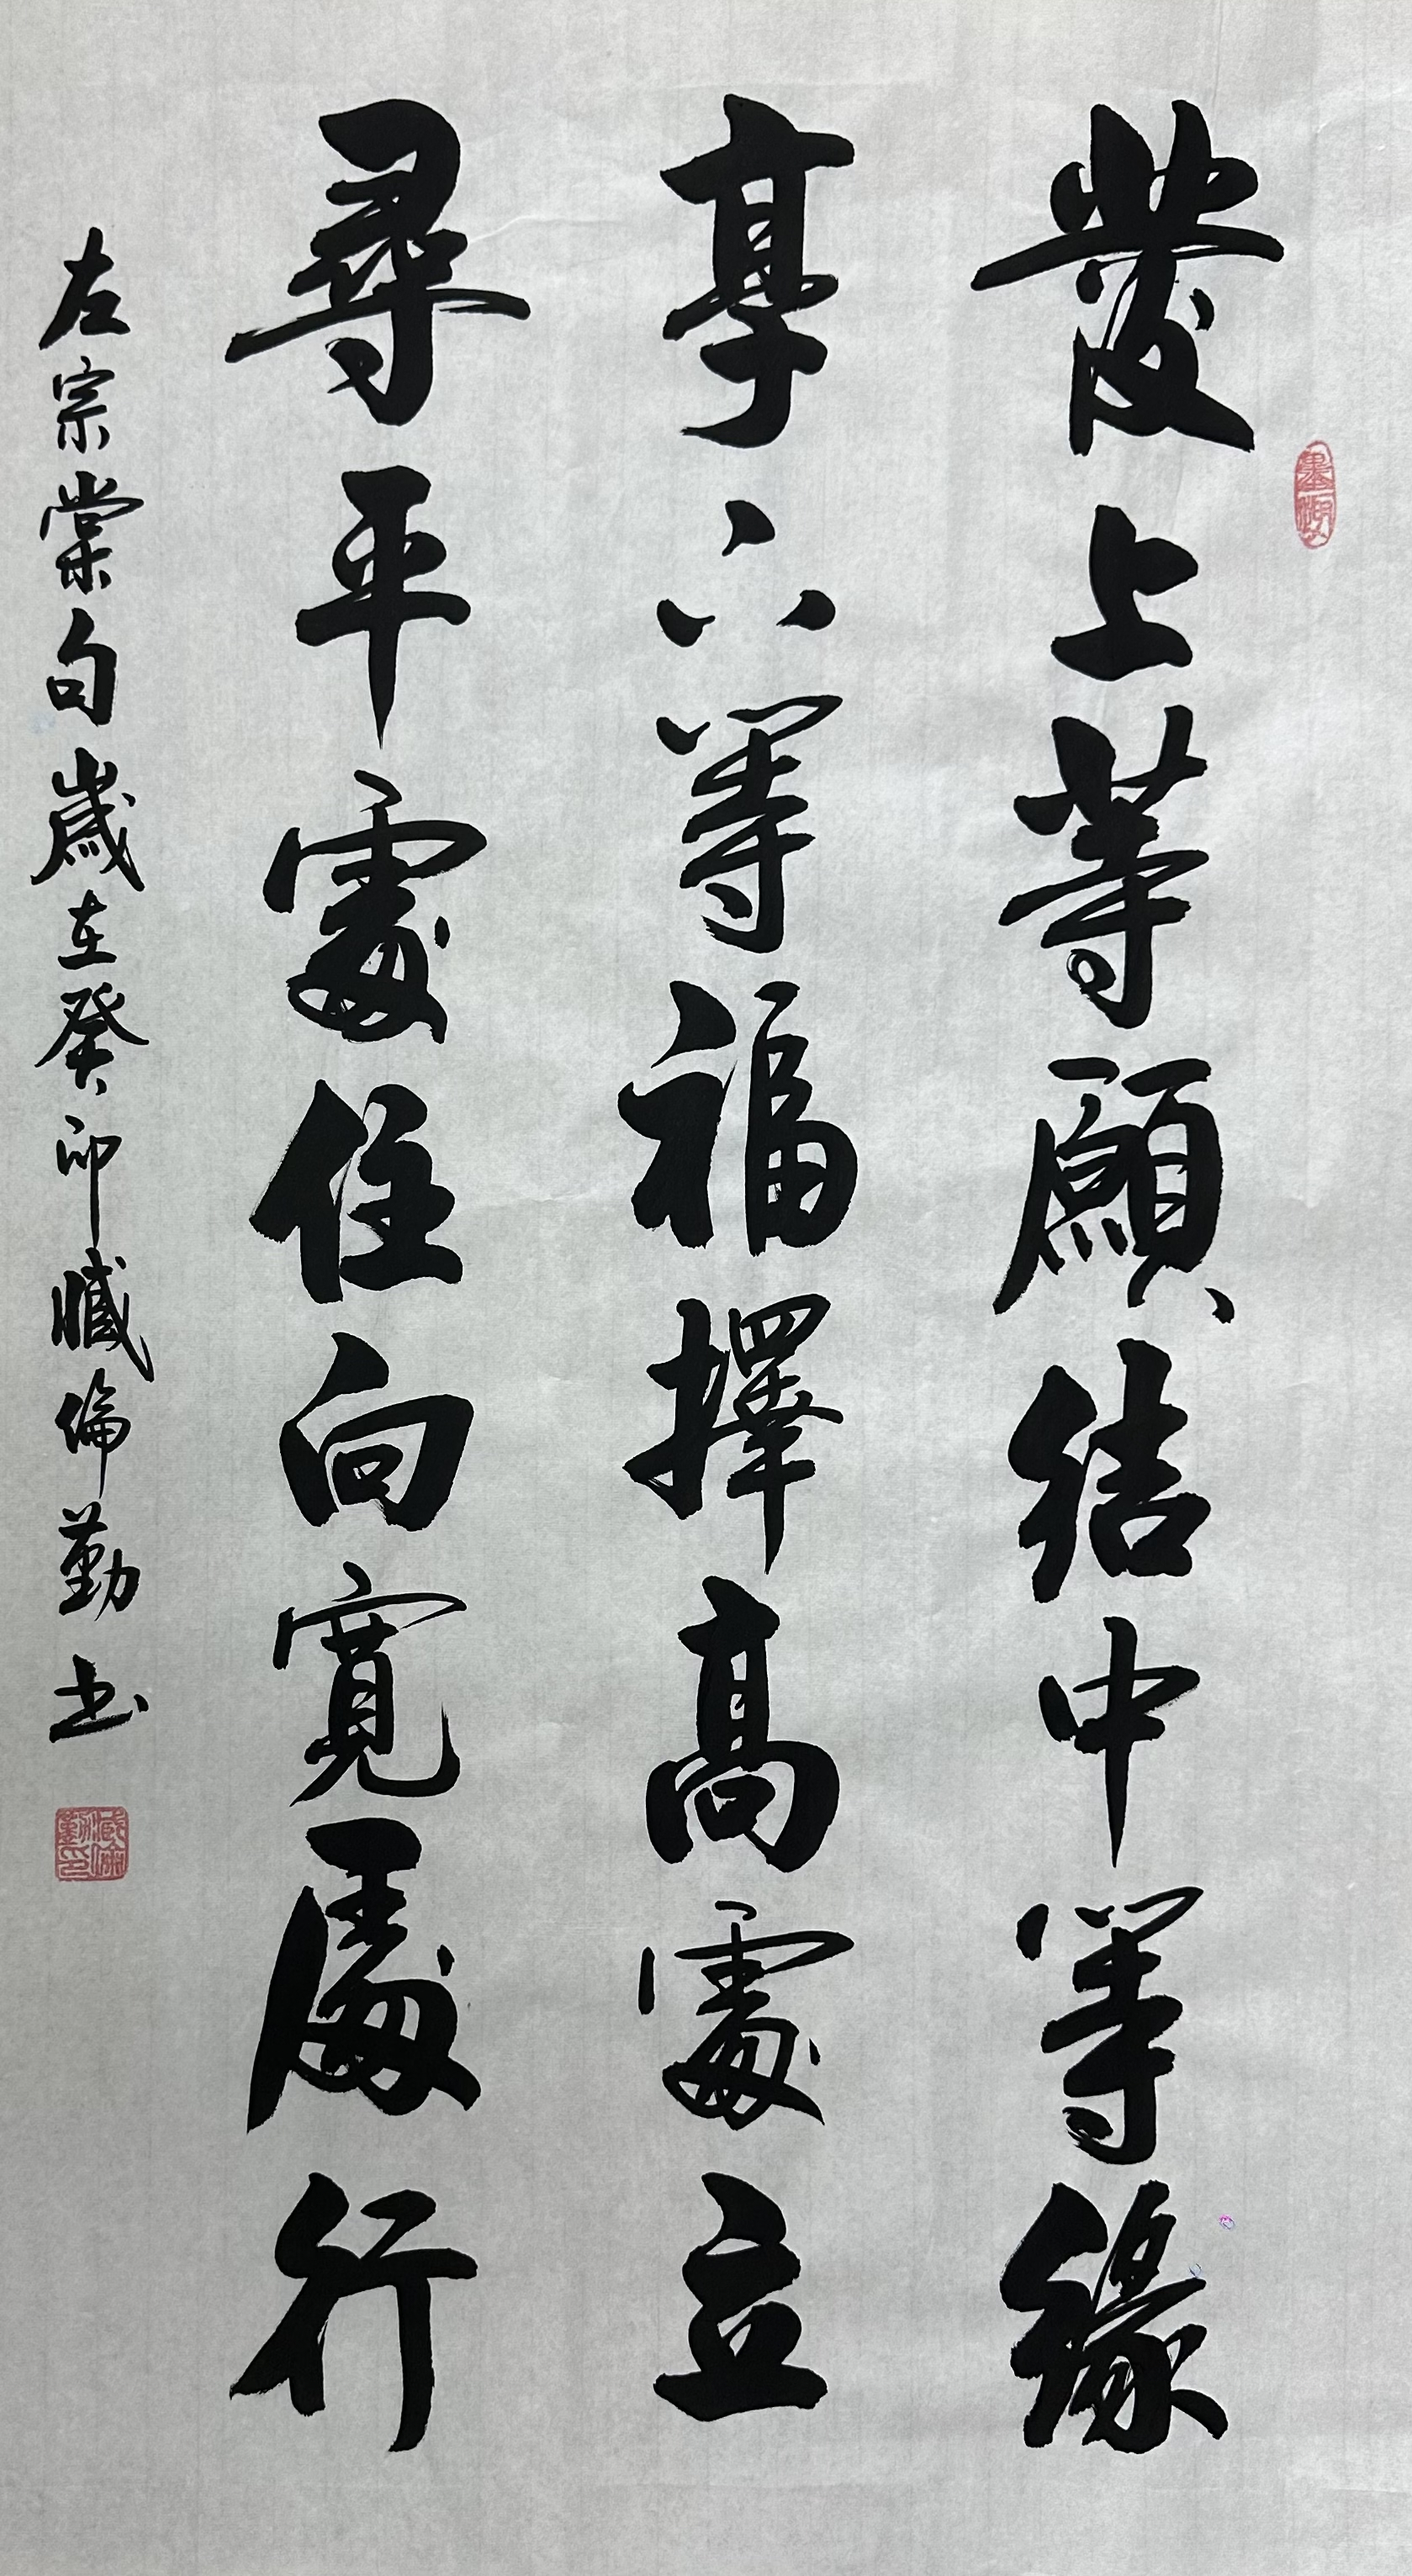 發上等願結中等緣
享下等福擇高處立
尋平處住向寬處行
左宗棠句歲在癸卯臧倫勤書